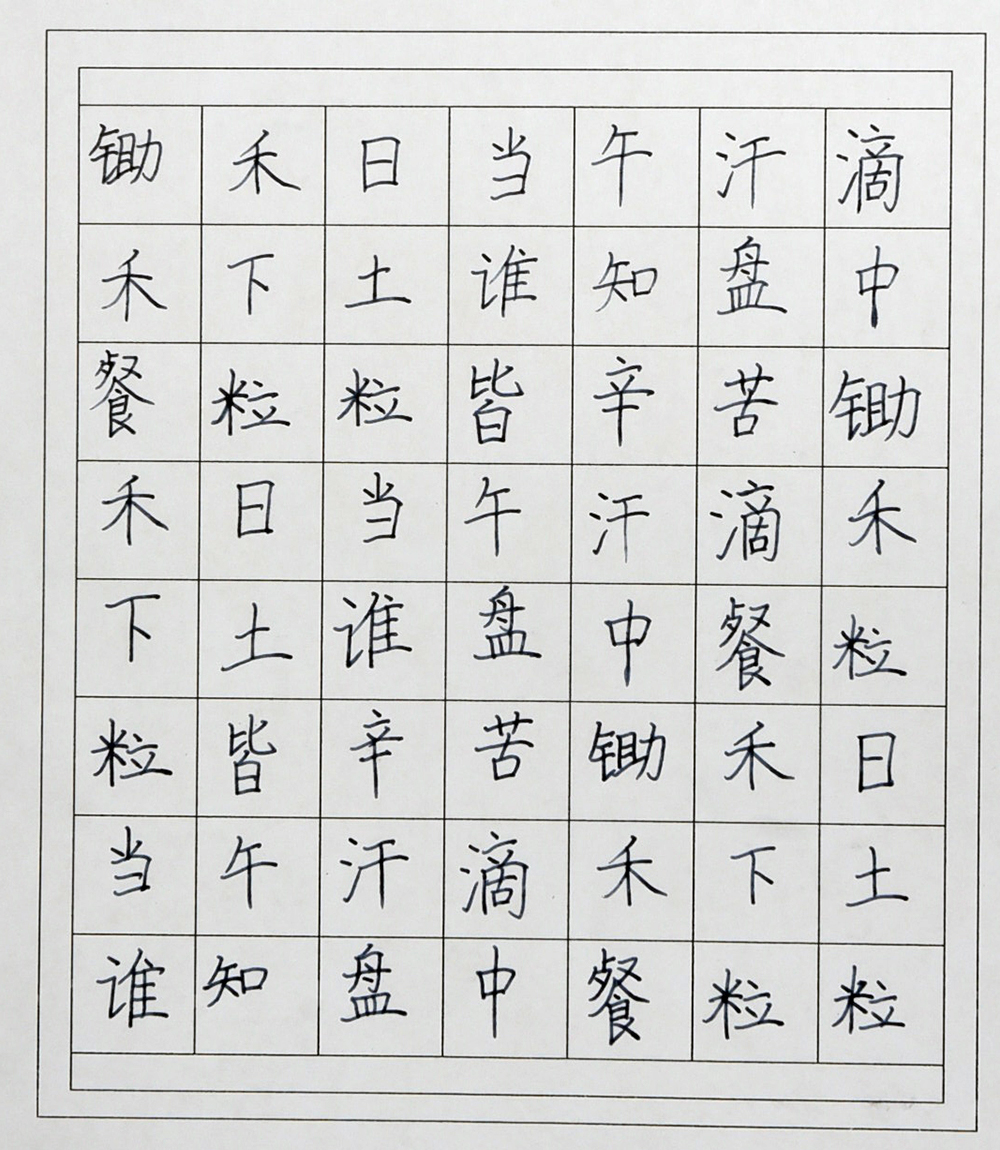 锄禾日当午汗滴
禾下土谁知盘中
餐粒粒皆辛苦锄
禾日当午汗滴禾
下土谁盘中餐粒
粒皆辛苦锄禾日
当午汗滴禾下土
谁知盘中餐粒粒